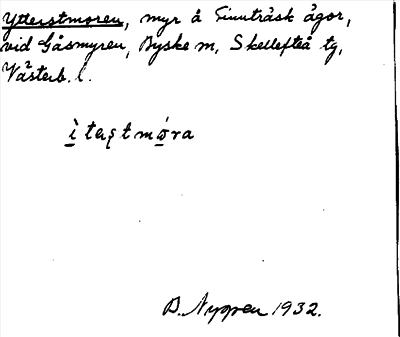 Ytterstmoren, myr å Finnträsk ägor,
vid Gåsmyren, Byske sn, Skellefteå tg,
Västerb. l.
ì təʂtmóra
D. Nygren 1932.